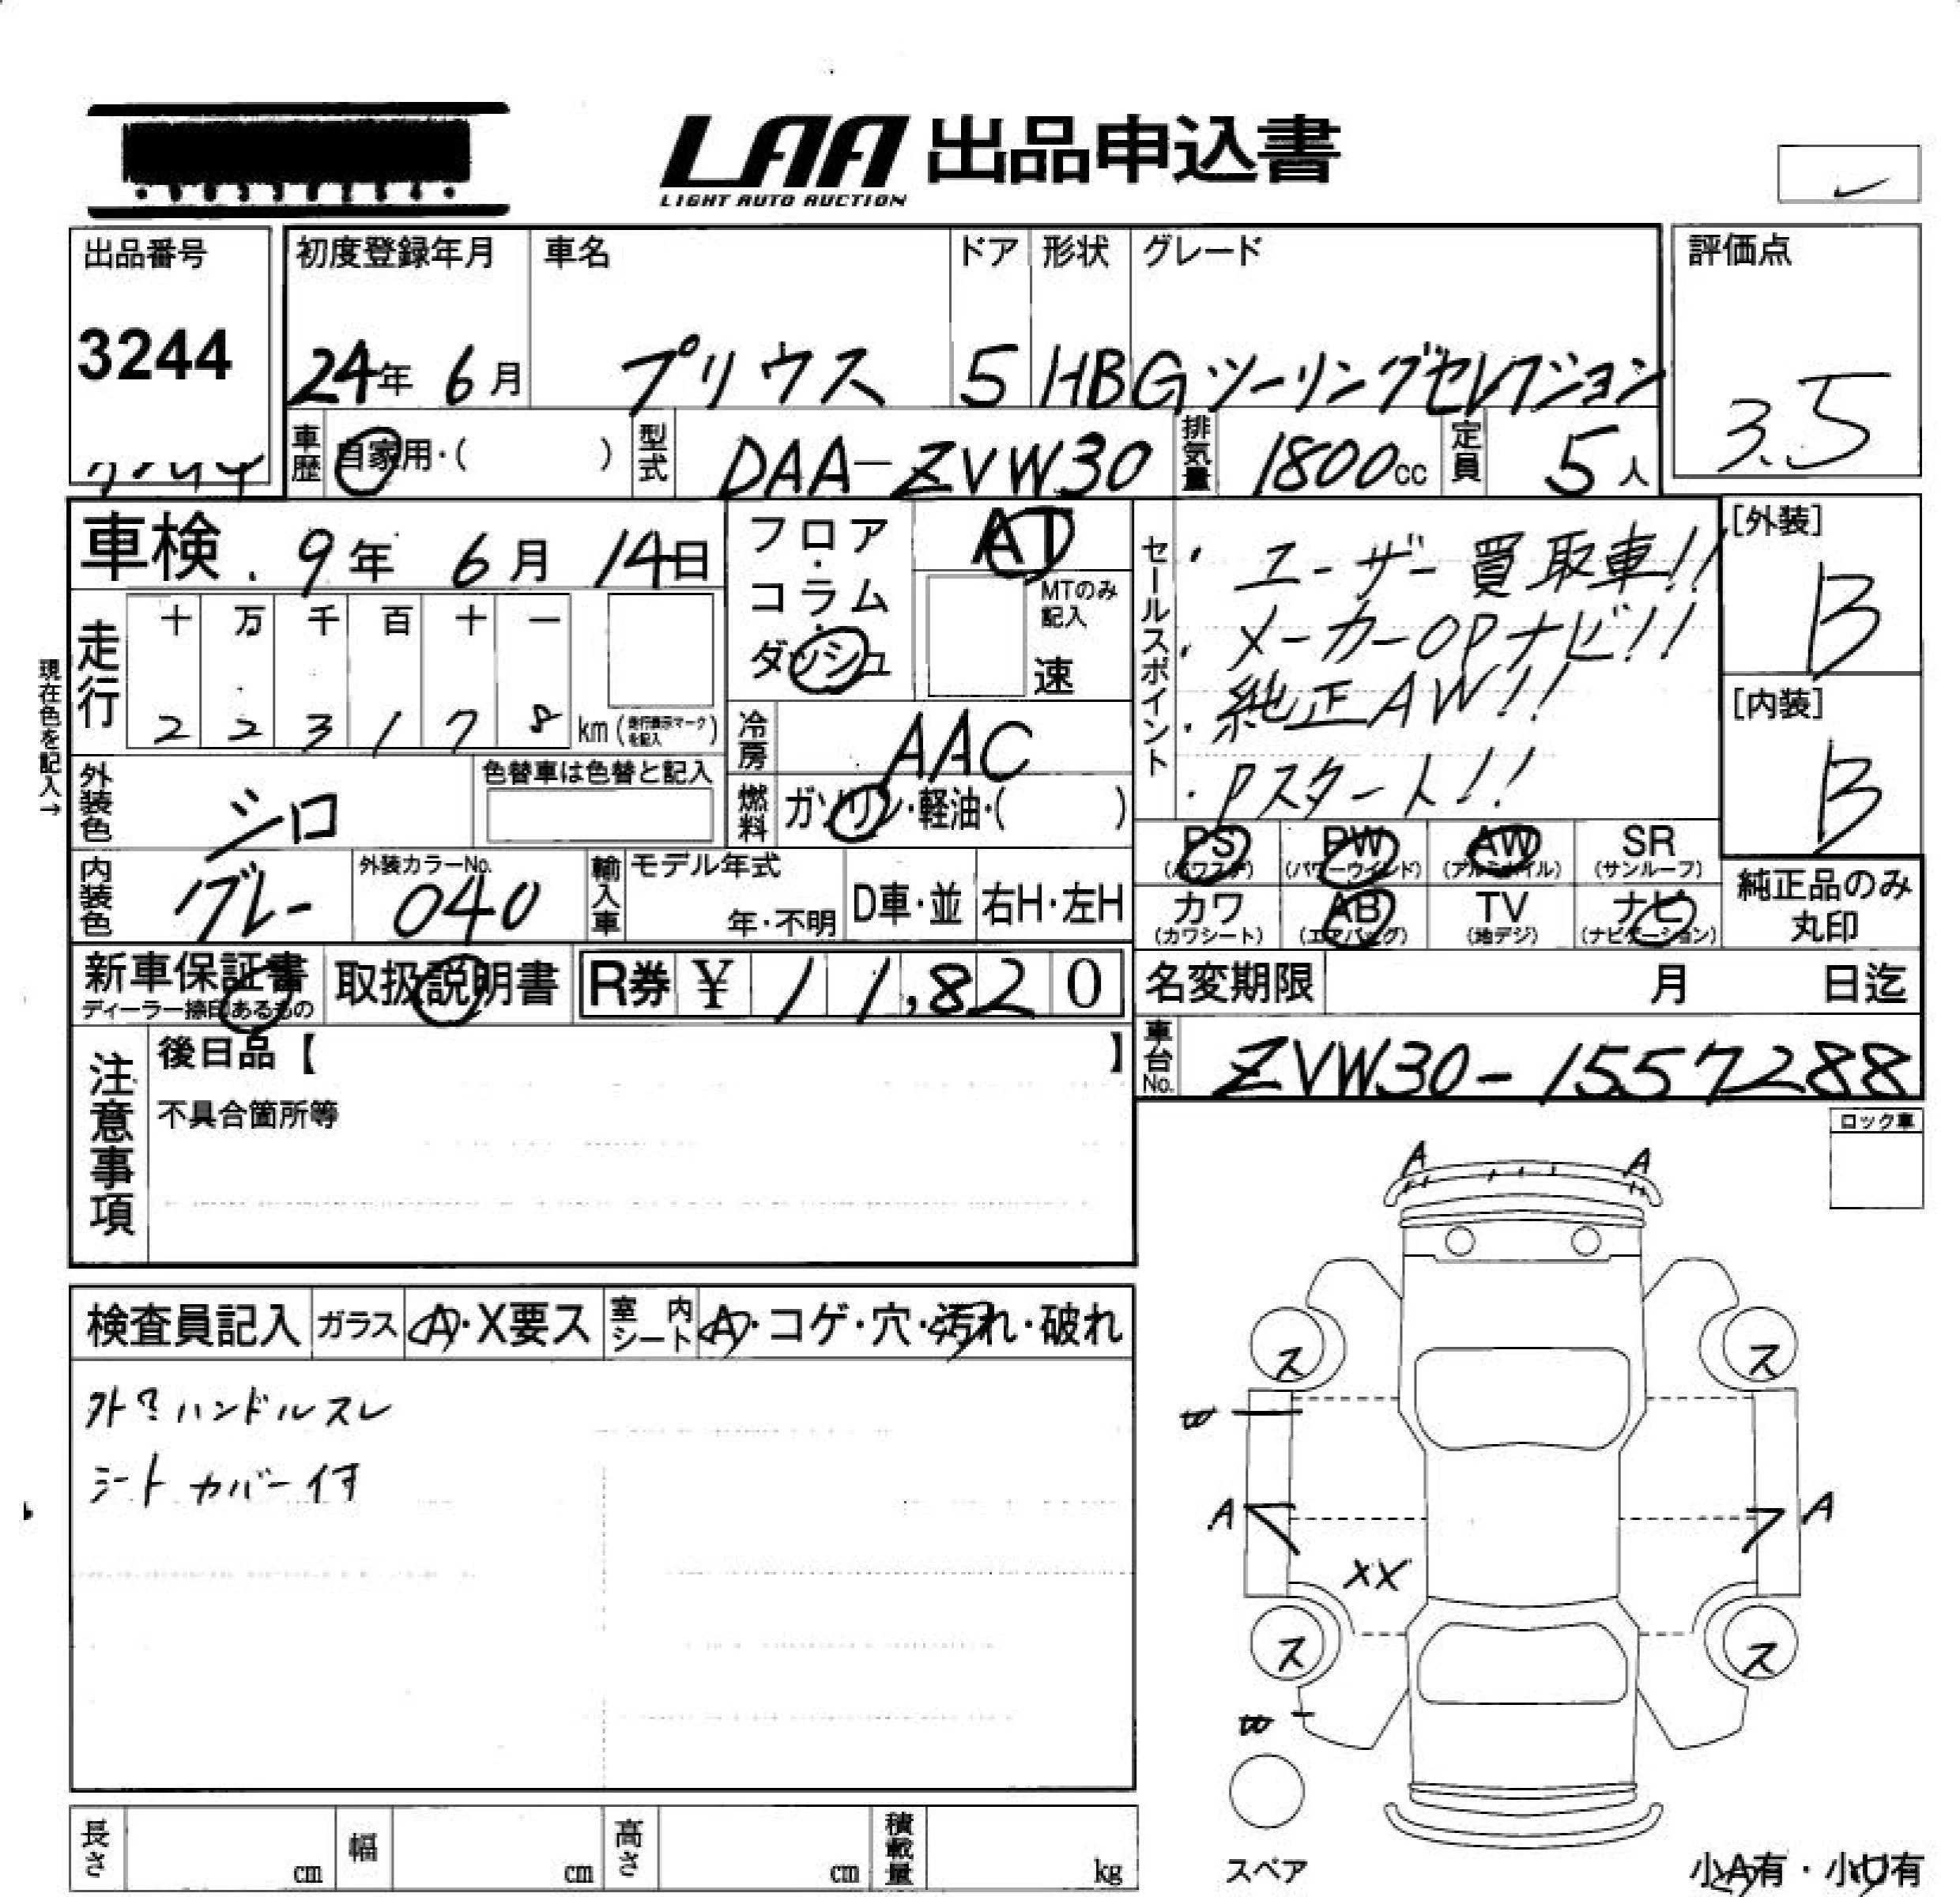 LAA 出品申込書
LIGHT AUTO AUCTION
出品番号 初度登録年月 車名 ドア 形状 グレード 評価点
3244 24年 6月 プリウス 5 HB Gツーリングセレクション 3.5
車歴 自家用・( ) 型式 DAA-ZVW30 排気量 1800cc 定員 5人
車検 9年 6月 14日
フロア・コラム・ダッシュ AT
MTのみ記入
速
走行 十 万 千 百 十 一
2 2 3 1 7 8 km (走行表示マークを記入)
現在色を記入→
冷房 AAC
外装色 シロ 色替車は色替と記入
燃料 ガソリン・軽油・( )
セールスポイント
・ユーザー買取車!!
・メーカーOPナビ!!
・純正AW!!
・Pスタート!!
[外装]
B
[内装]
B
PS PW AW SR
(パワステ) (パワーウインド) (アルミホイル) (サンルーフ)
カワ AB TV ナビ
(カワシート) (エアバッグ) (地デジ) (ナビゲーション)
純正品のみ
丸印
内装色 グレー 外装カラーNo. 040 輸入車 モデル年式 年・不明 D車・並 右H・左H
新車保証書 取扱説明書 R券 ¥ 11,820
ディーラー捺印あるもの
名変期限 月 日迄
車台No. ZVW30-1557288
注意事項
後日品【 】
不具合箇所等
ロック車
検査員記入 ガラス A・X要ス 室内シート A・コゲ・穴・汚れ・破れ
ハンドルスレ
シートカバー付
A A
ス ス
W
A A
XX
ス ス
W
スペア
長さ cm 幅 cm 高さ cm 積載量 kg
小A有・小U有